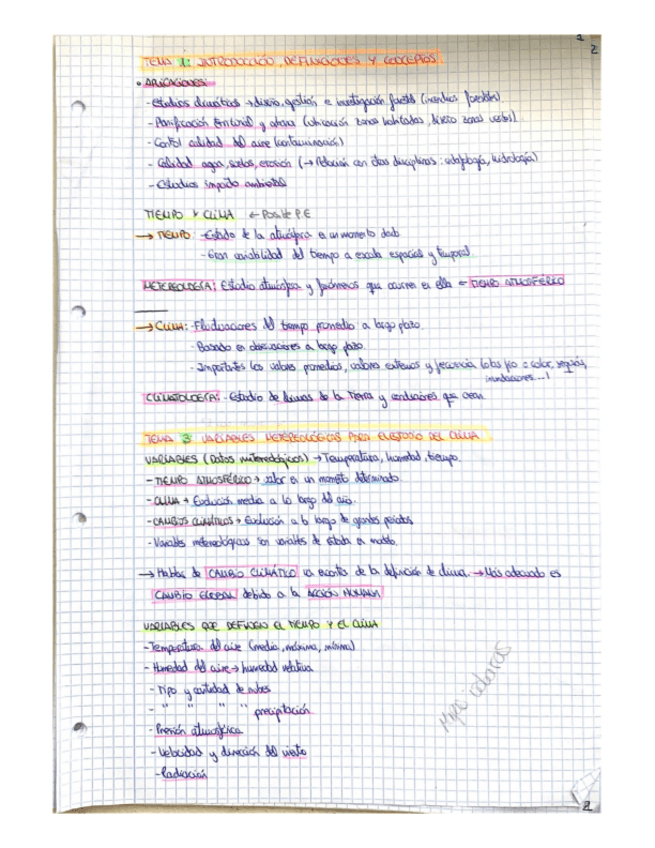 1
2
TEMA 1: INTRODUCCIÓN, DEFINICIONES Y CONCEPTOS
• APLICACIONES:
- Estudios climáticos → diseño, gestión e investigación forestal (incendios forestales)
- Planificación territorial y urbana (ubicación zonas habitadas, diseño zonas verdes).
- Control calidad del aire (contaminación)
- Calidad agua, suelos, erosión (→ Relación con otras disciplinas: edafología, hidrología)
- Estudios impacto ambiental
TIEMPO Y CLIMA ← Posible P.E
→ TIEMPO: - Estado de la atmósfera en un momento dado
- Gran variabilidad del tiempo a escala espacial y temporal.
METEREOLOGÍA: Estudio atmósfera y fenómenos que ocurren en ella = TIEMPO ATMOSFÉRICO
→ CLIMA: - Fluctuaciones del tiempo promedio a largo plazo.
- Basado en observaciones a largo plazo.
- Importantes los valores promedios, valores extremos y frecuencia (olas frío o calor, sequías,
inundaciones...)
CLIMATOLOGÍA: - Estudio de climas de la Tierra y condiciones que crean
TEMA 3: VARIABLES METEREOLÓGICAS PARA EL ESTUDIO DEL CLIMA
VARIABLES (Datos metereológicos) → Temperatura, humedad, tiempo.
- TIEMPO ATMOSFÉRICO → valor en un momento determinado.
- CLIMA → Evolución media a lo largo del año.
- CAMBIOS CLIMÁTICOS → Evolución a lo largo de grandes periodos
- Variables metereológicas son variables de estado en modelo.
→ Hablar de CAMBIO CLIMÁTICO va encontra de la definición de clima. → Más adecuado es
CAMBIO GLOBAL debido a la ACCIÓN HUMANA
VARIABLES QUE DEFINEN EL TIEMPO Y EL CLIMA
- Temperatura del aire (media, máxima, mínima)
- Humedad del aire → humedad relativa
- Tipo y cantidad de nubes
- " " " " precipitación
- Presión atmosférica
- Velocidad y dirección del viento
- Radiación
2